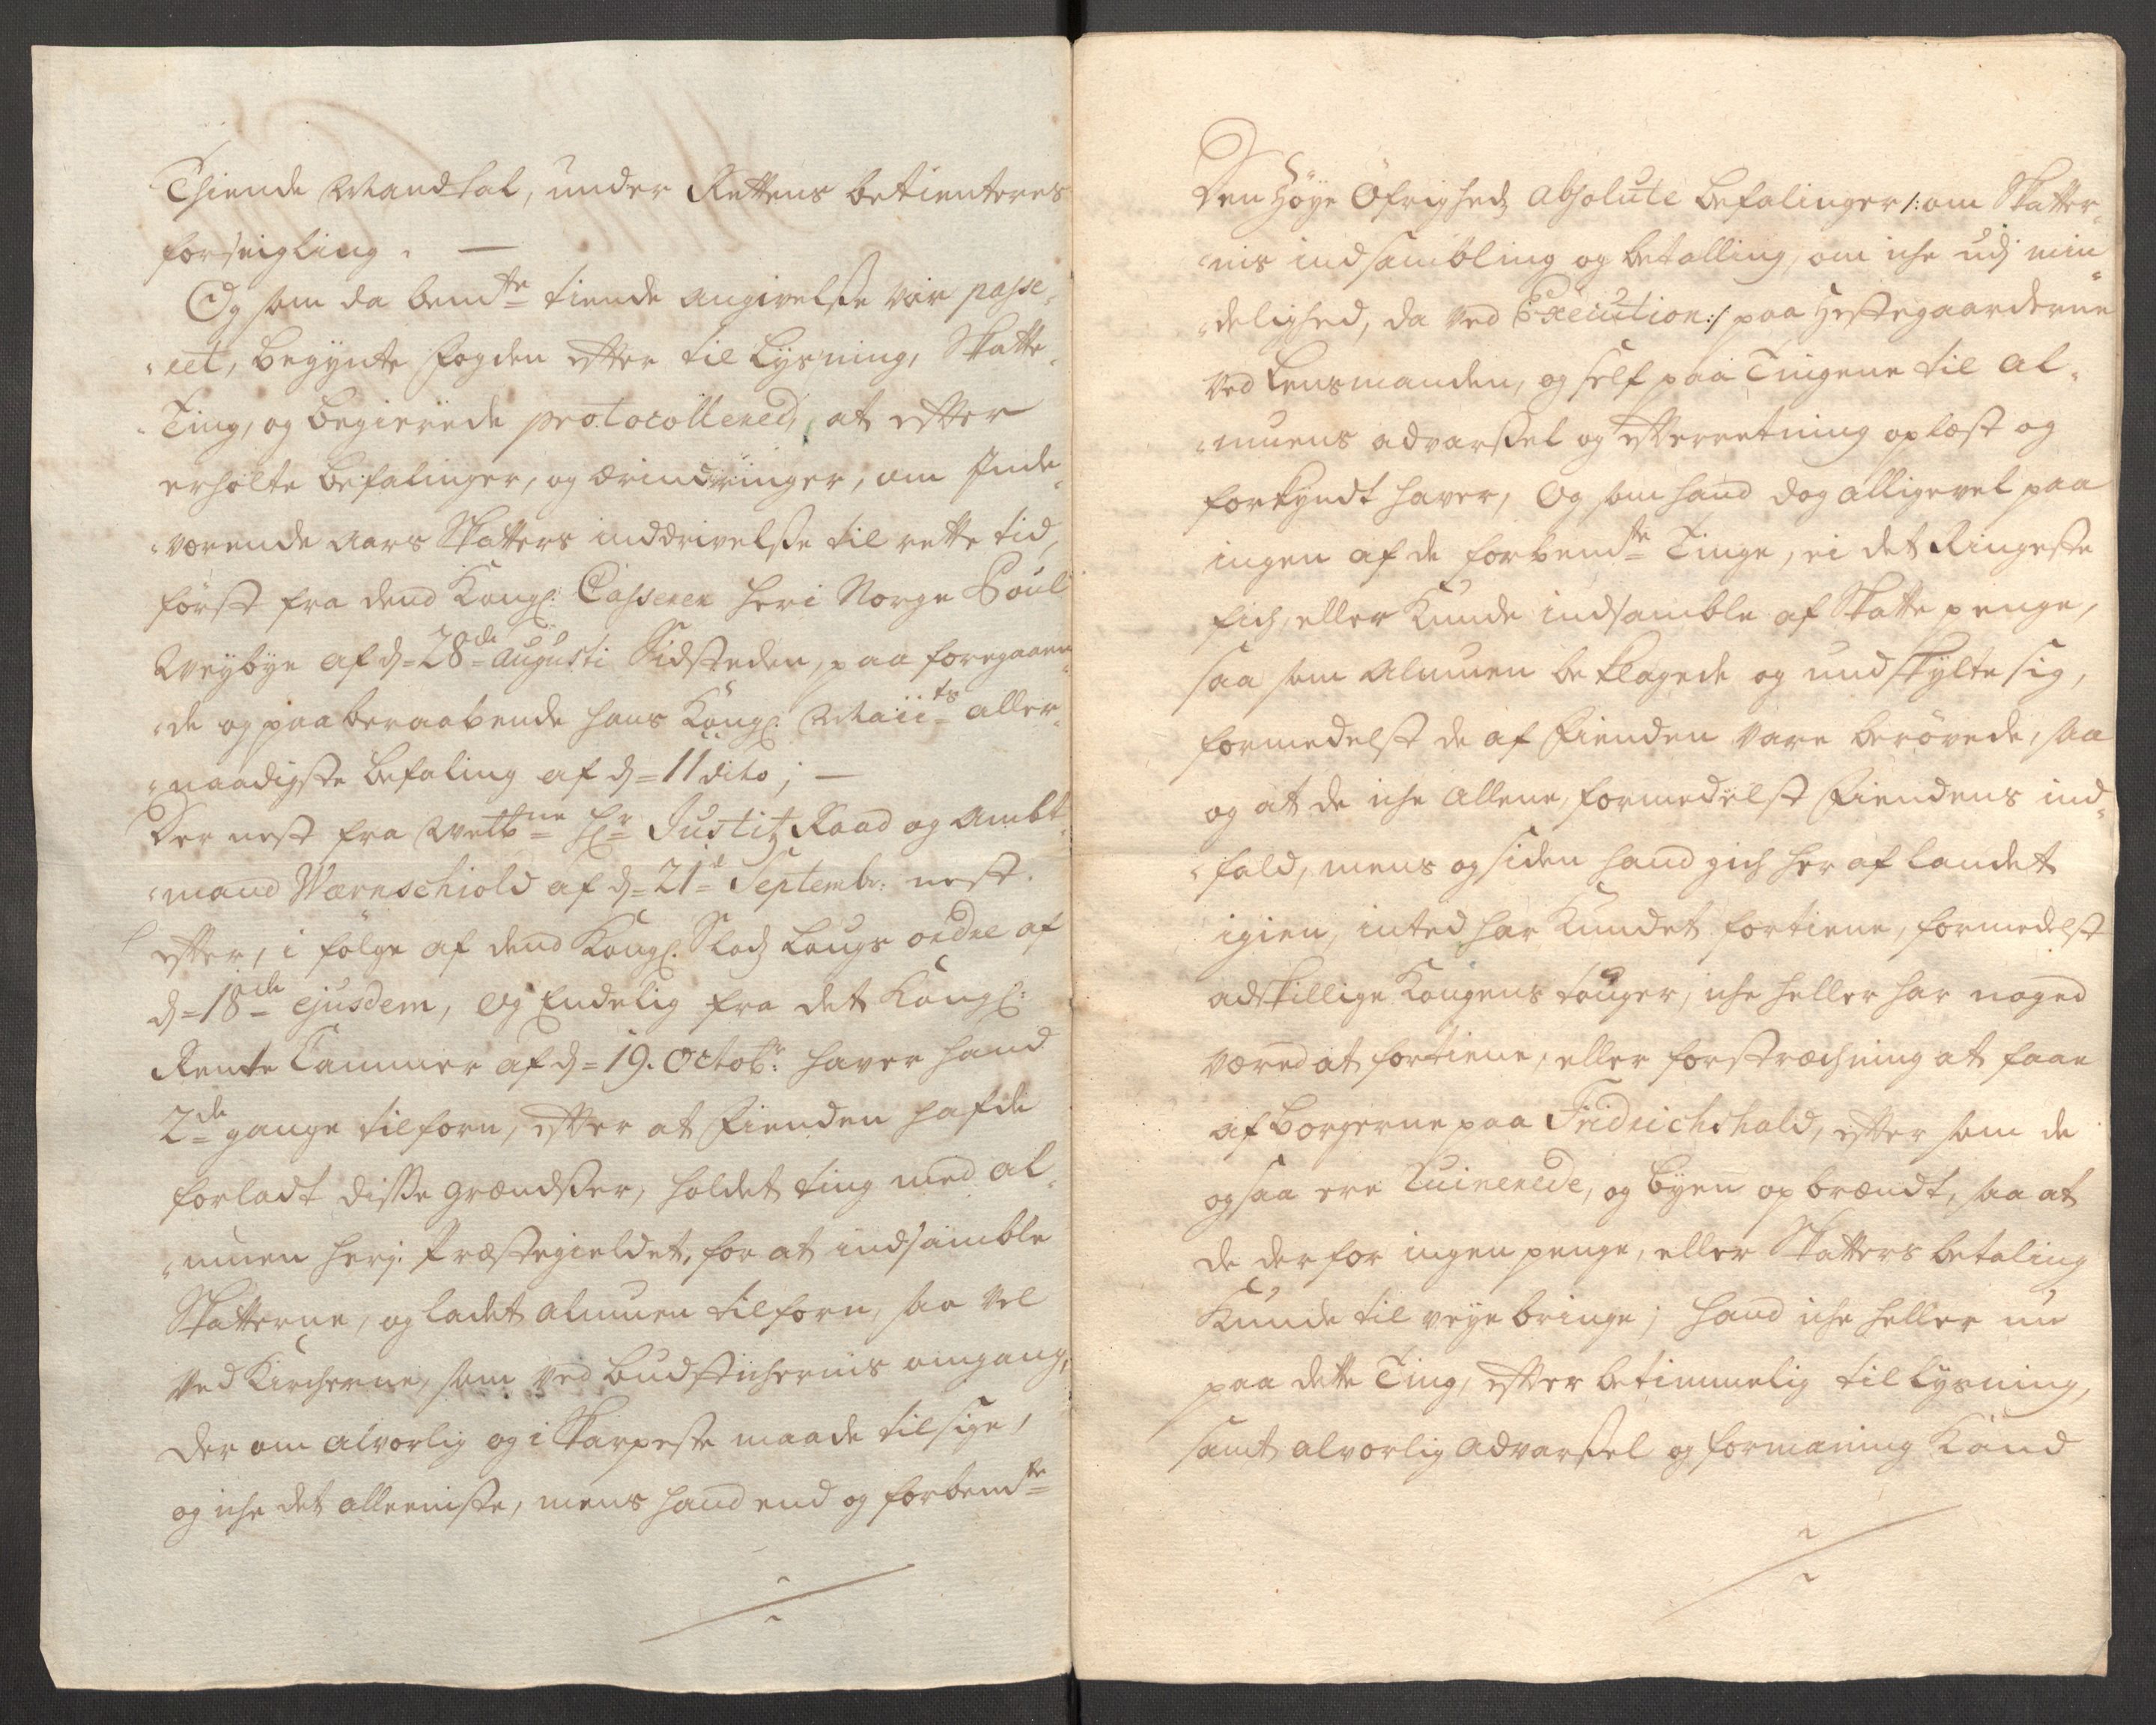 Thiende Mandtal, under Rettens betienteres
forseigling. —
Og som da bemte tiende angivelse var passe-
ret, begynte Fogden efter tillysning, Skatte-
Ting, og begierede protocollered, at efter
erholte befalinger, og erindringer, om Inde-
værende aars Skatters inddrivelse til rette tid,
först fra dend Kongl: Casserer her i Norge Poul
Weybye af d. 28de Augusti Sidstleden, paa foregaaen-
de og paaberaabende hans Kongl: Maiits aller-
naadigste befaling af d. 11 dito; —
Der nest fra Welbne Hr Justitz Raad og Ambt-
mand Wærnschiold af d. 21de Septembr: nest-
efter, i fölge af dend Kongl. Slodz Lougs ordre af
d. 18de ejusdem, og Endelig fra det Kongl:
Rente Cammer af d. 19. Octobr: haver hand
2de gange tilforn, efter at Fienden hafde
forladt disse grændser, holdet ting med al-
muen her j. Præstegieldet, for at indsamble
Skatterne, og ladet almuen tilforn, saa vel
ved Kircherne, som ved budstichernis omgang,
der om alvorlig og i Skarpeste maade tilsige,
og iche det alleeniste, mens hand end og forbemte
Den Höye Öfrigheds absolute befalinger /: om Skatter-
nis indsambling og betalling, om iche udj min-
delighed, da ved Execution :/ paa Hestegaarderne
ved Lensmanden, og self paa Tingene til al-
muens advarsel og efterretning oplæst og
forkyndt haver, Og som hand dog alligevel paa
ingen af de forbemte Tinge, ei det Ringeste
fich, eller Kunde indsamble af Skatte penge,
saa som almuen beklagede og undskylte sig,
formedelst de af Fienden vare berövede, saa
og at de iche allene, formedelst Fiendens ind-
fald, mens og siden hand gich her af landet
igien, inted har Kundet fortiene, formedelst
adskillige Kongens touger, iche heller har noged
været at fortiene, eller forstræchning at faae
af borgerne paa Fridrichshald, efter som de
ogsaa ere Ruinerede, og byen opbrændt, saa at
de derfor ingen penge, eller Skatters betaling
Kunde til veye bringe; hand iche heller nu
paa dette Ting, efter betimmelig tillysning,
samt alvorlig advarsel og formaning Kand